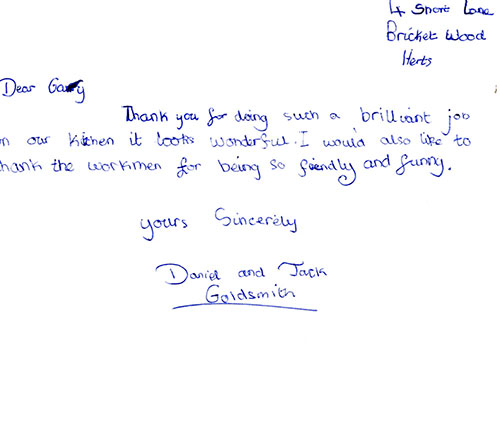 4 Short Lane
Bricket Wood
Herts
Dear Gary
Thank you for doing such a brilliant job
n our kitchen it looks wonderful. I would also like to
hank the workmen for being so friendly and funny.
yours Sincerely
Daniel and Jack
Goldsmith